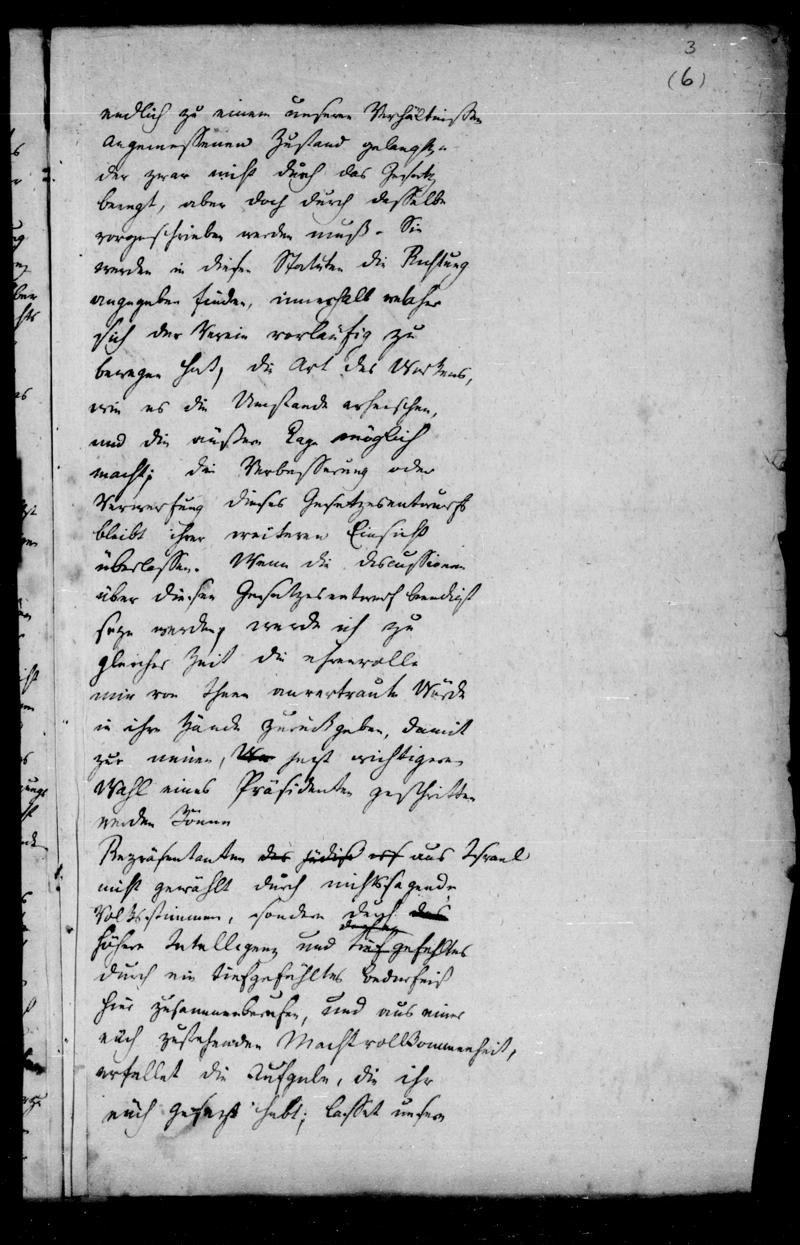 3
(6)
endlich zu einem unseren Verhältnissen
angemessenen Zustand gelangt,
der zwar nicht durch das Gesetz
beengt, aber doch durch dasselbe
vorgeschrieben werden muß. Sie
werden in diesen Statuten die Richtung
angegeben finden, innerhalb welcher
sich der Verein vorläufig zu
bewegen hat, die Art des Wirkens,
wie es die Umstände erheischen,
und die äußere Lage möglich
macht; die Verbesserung oder
Verwerfung dieses Gesetzesentwurfs
bleibt ihrer weiteren Einsicht
überlassen. Wenn die Discussionen
über diesen Gesetzesentwurf beendigt
seyn werden, werde ich zu
gleicher Zeit die ehrenvolle
mir von Ihnen anvertraute Würde
in ihre Hände zurückgeben, damit
zur neuen, jetzt wichtigeren
Wahl eines Präsidenten geschritten
werden könne
Repräsentanten des jüdisch aus Israel
nicht gewählt durch nichtssagende
Volksstimmen, sondern durch das
höhere Intelligenz und tief gefühltes
durch ein tiefgefühltes Bedürfniß
hier zusammenberufen, und aus einer
euch zustehenden Machtvollkommenheit,
erfüllet die Aufgabe, die ihr
euch gesetzt habt; lasset unsern